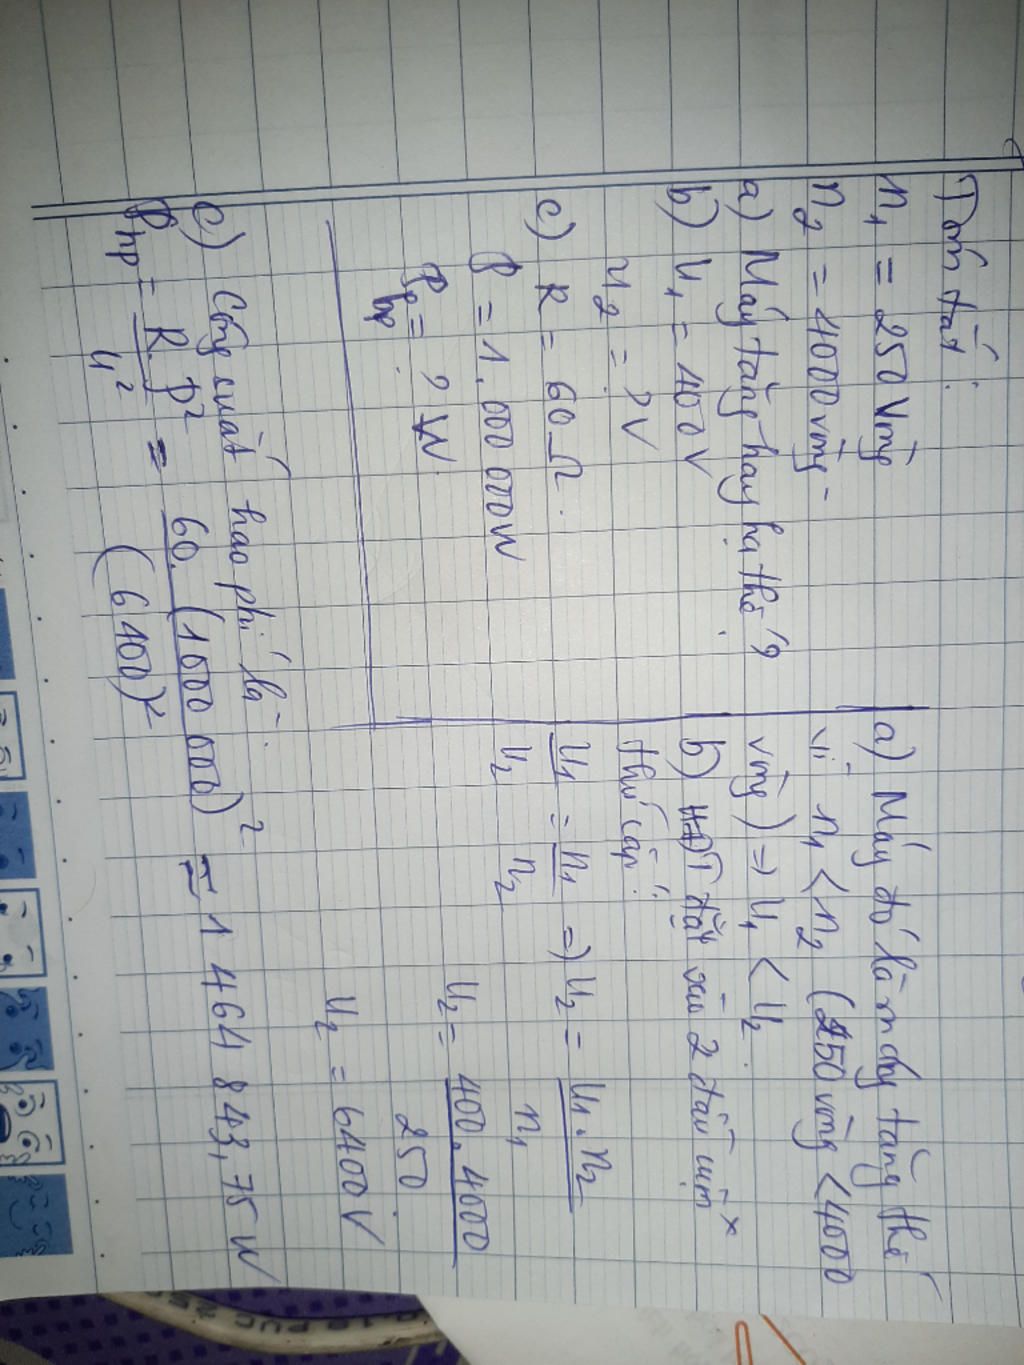 Tóm tắt:
n₁ = 250 Vòng
n₂ = 4000 vòng
a) Máy tăng hay hạ thế?
b) U₁ = 400 V
U₂ = ? V
c) R = 60 Ω.
P = 1.000 000 W
P hp = ? W.
a) Máy đó là máy tăng thế
vì n₁ < n₂ (250 vòng < 4000
vòng) => U₁ < U₂.
b) HĐT đặt vào 2 đầu cuộn
thứ cấp:
U₁/U₂ = n₁/n₂ => U₂ = U₁.n₂/n₁
U₂ = 400.4000/250
U₂ = 6400 V
c) Công suất hao phí là:
P hp = R.P²/U² = 60.(1000 000)²/(6400)² ≈ 1 464 843,75 W